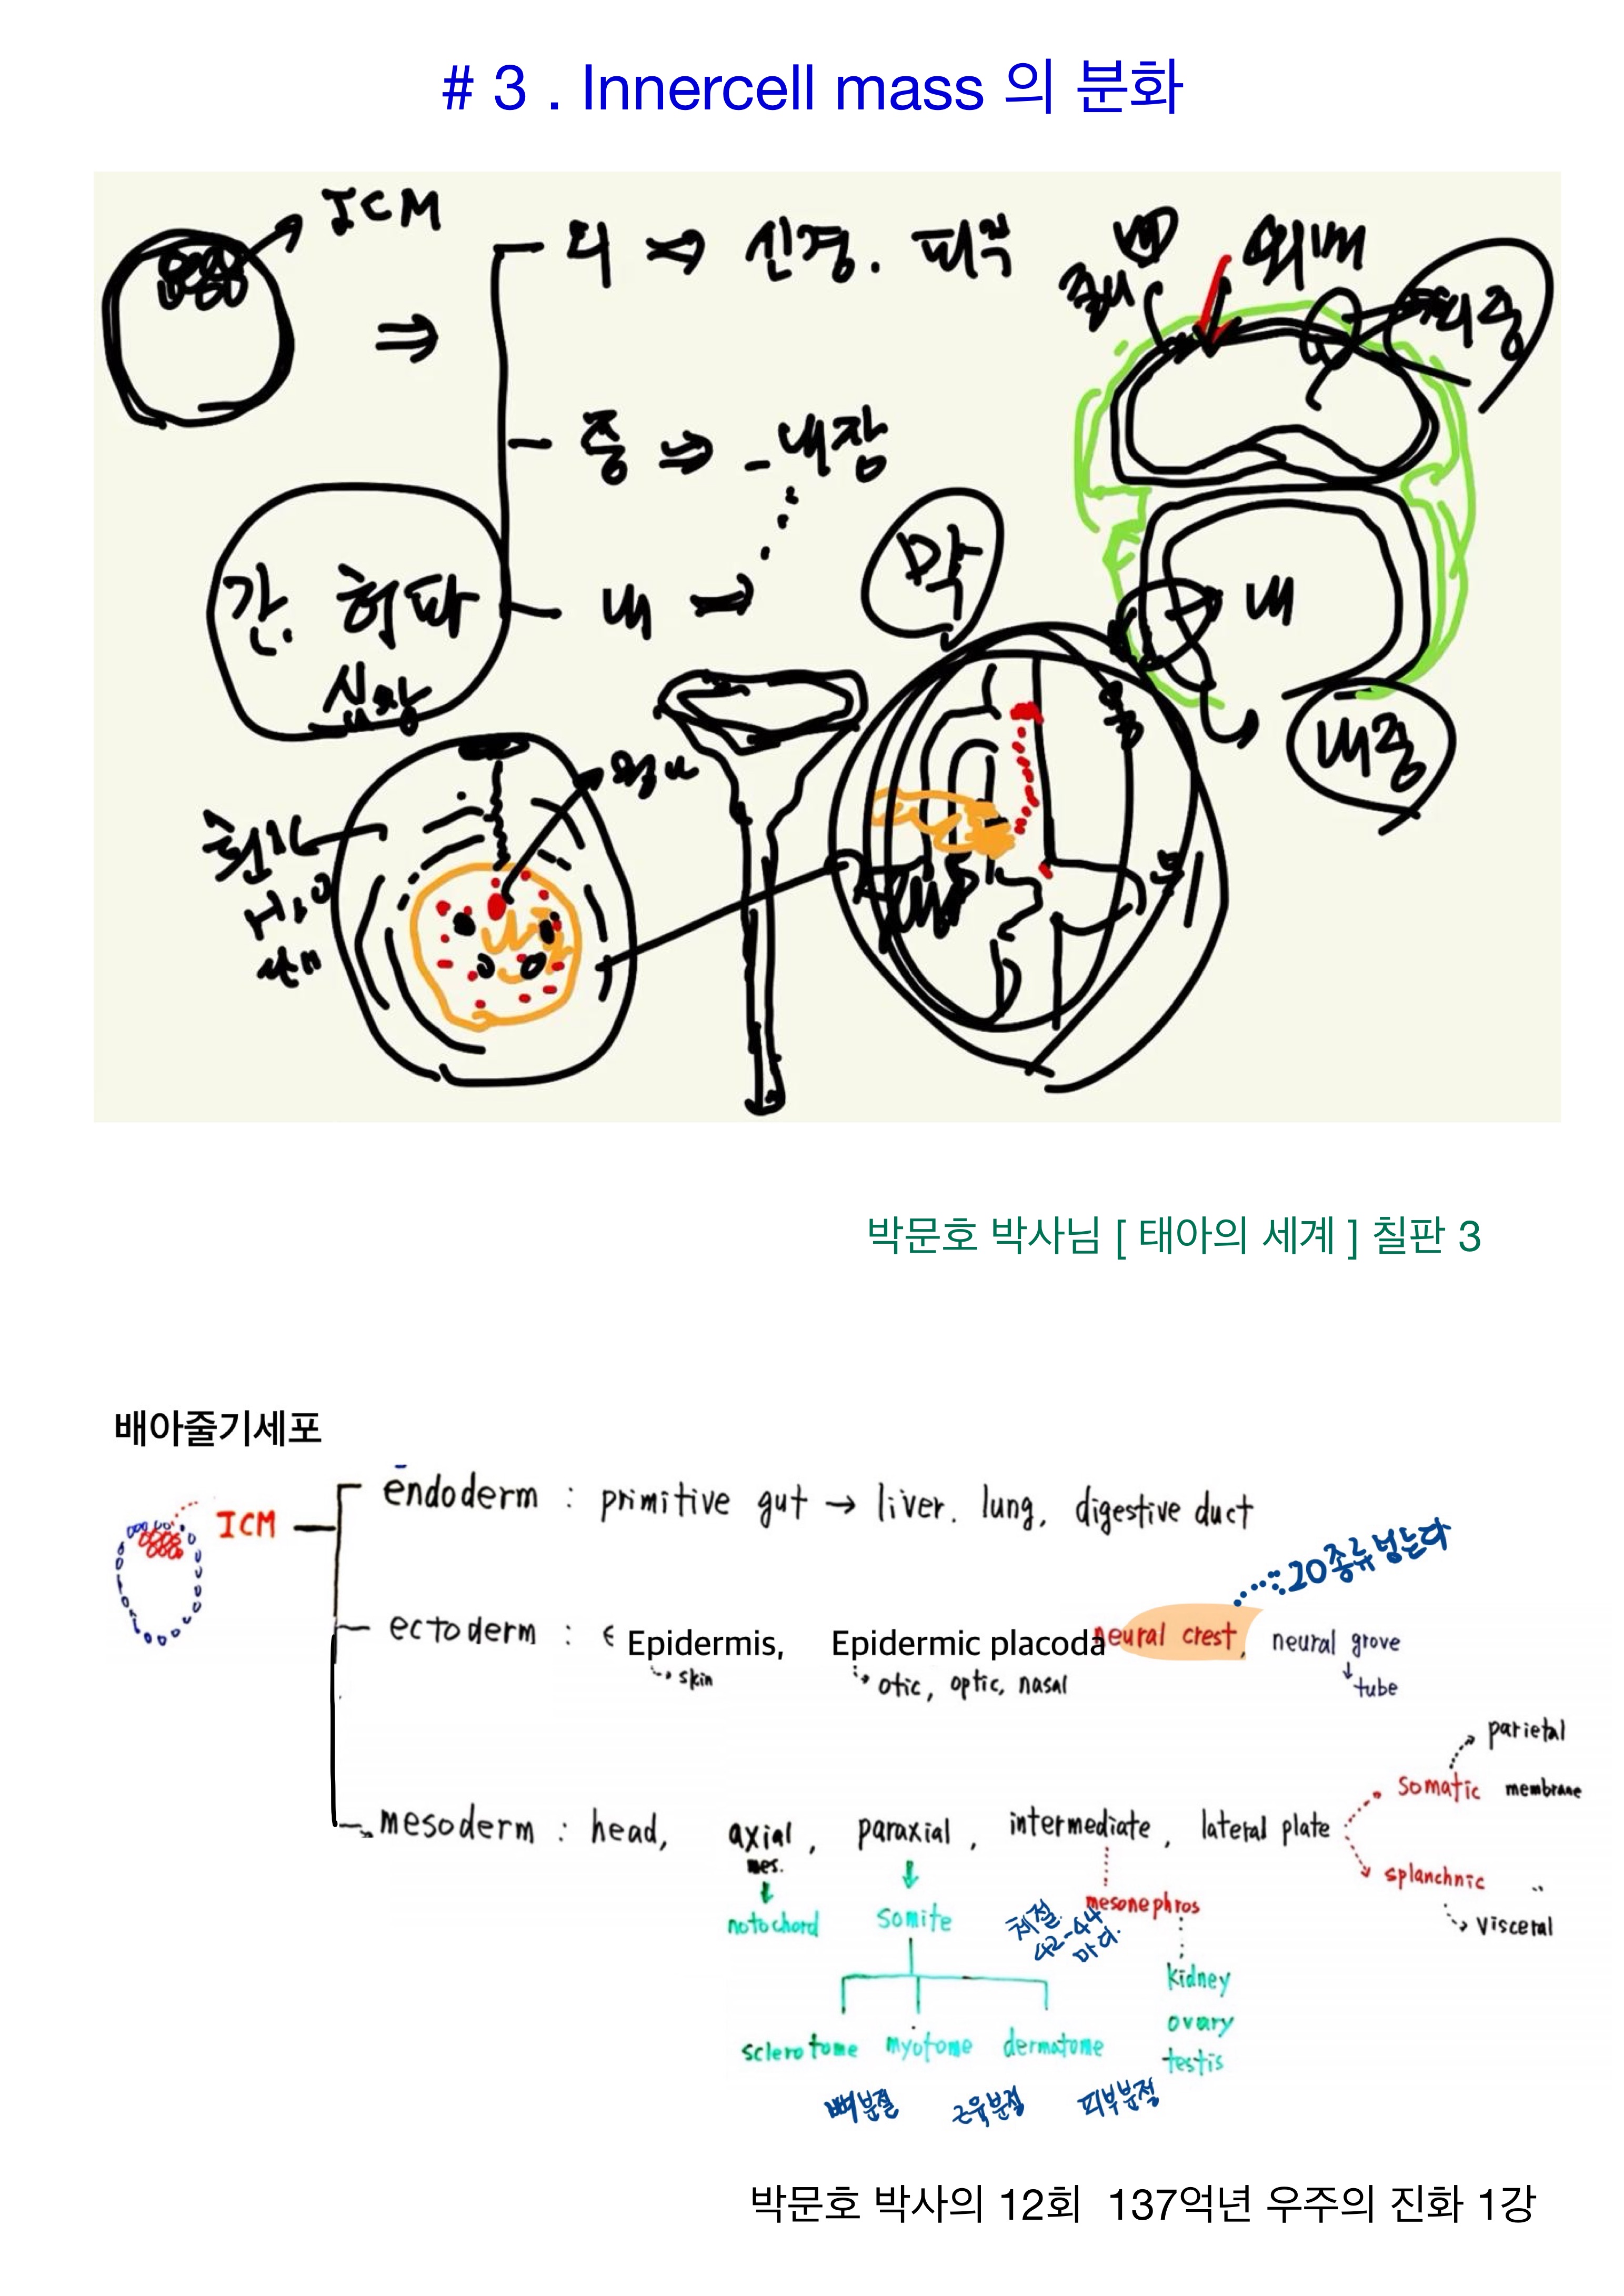 # 3 . Innercell mass 의 분화
ICM
외 ⇒ 신경. 피부
외배
중 ⇒ 내장
내 →
간. 허파
심장
막
내
내중
박문호 박사님 [ 태아의 세계 ] 칠판 3
배아줄기세포
ICM
endoderm : primitive gut → liver. lung, digestive duct
20종류 넘는다
ectoderm : Epidermis, Epidermic placoda neural crest, neural grove
skin
otic, optic, nasal
tube
parietal
somatic membrane
mesoderm : head, axial, paraxial, intermediate, lateral plate
mes.
splanchnic "
visceral
notochord
somite
mesonephros
체절
42-44
마디.
kidney
ovary
testis
sclerotome myotome dermatome
뼈분절 근육분절 피부분절
박문호 박사의 12회 137억년 우주의 진화 1강